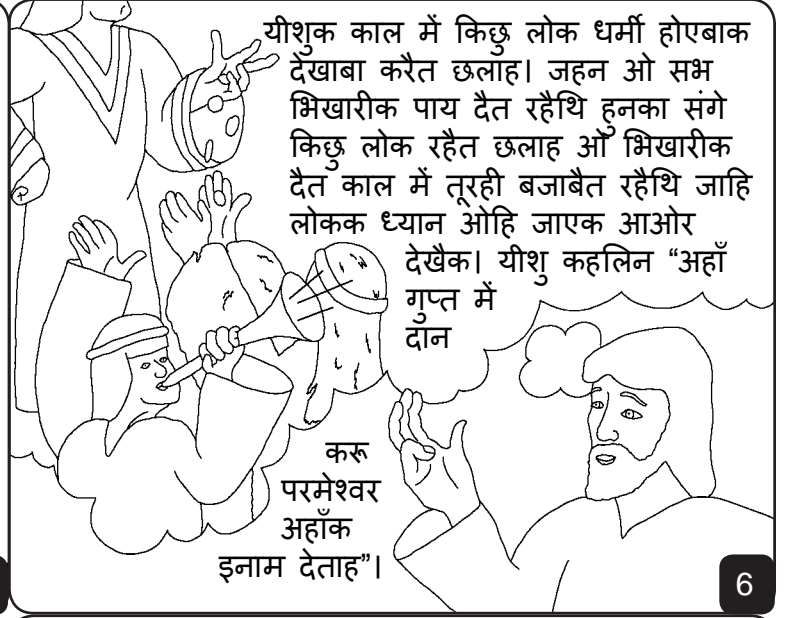 यीशुक काल में किछु लोक धर्मी होएबाक
देखाबा करैत छलाह। जहन ओ सभ
भिखारीक पाय दैत रहैथि हुनका संगे
किछु लोक रहैत छलाह ओ भिखारीक
दैत काल में तूरही बजाबैत रहैथि जाहि
लोकक ध्यान ओहि जाएक आओर
देखैक। यीशु कहलिन “अहाँ
गुप्त में
दान
करू
परमेश्वर
अहाँक
इनाम देताह”।
6